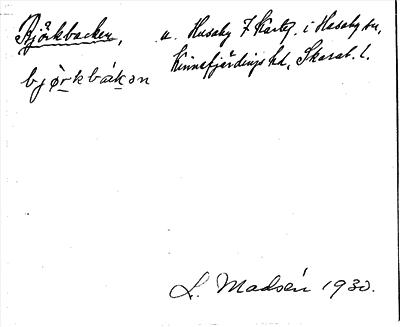 Björkbacken, u. Husaby 7 Kartg. i Husaby sn,
Kinnefjärdings hd, Skarab. l.
bjòrkbákən
L. Madsén 1930.